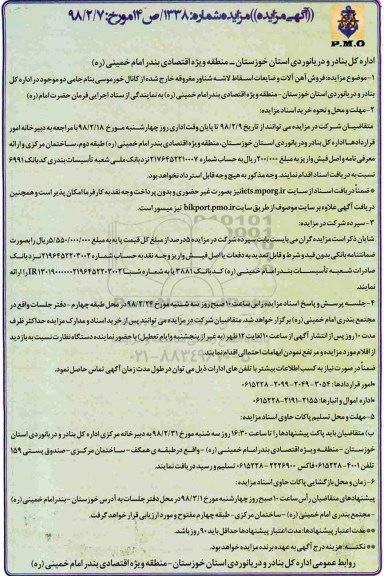 ((آگهی مزایده))مزایده شماره: ۱۳۳۸/ص۱۴ مورخ: ۹۸/۲/۷
P.M.O
اداره کل بنادر و دریانوردی استان خوزستان _ منطقه ویژه اقتصادی بندر امام خمینی (ره)
۱-موضوع مزایده: فروش آهن آلات و ضایعات اسقاط لاشه شناور مغروقه خارج شده از کانال خورموسی بنام جامی دو موجود در اداره کل
بنادر و دریانوردی استان خوزستان -منطقه ویژه اقتصادی بندر امام خمینی (ره) به نمایندگی از ستاد اجرایی فرمان حضرت امام (ره)
۲- مهلت و محل و نحوه خرید اسناد مزایده:
متقاضیان شرکت در مزایده می توانند از تاریخ ۹۸/۲/۹ تا پایان وقت اداری روز چهارشنبه مورخ ۹۸/۲/۱۸ با مراجعه به دبیرخانه امور
قراردادها اداره کل بنادر و دریانوردی استان خوزستان، منطقه ویژه اقتصادی بندر امام خمینی (ره) طبقه دوم، ساختمان مرکزی و ارائه
معرفی نامه و اصل فیش واریز به مبلغ ۲۰۰/۰۰۰ ریال به حساب شماره ۲۱۷۶۴۵۲۲۱۰۰۷ نزد بانک ملی شعبه تأسیسات بندری کد بانک ۶۹۹۱
نسبت به دریافت اسناد اقدام نمایند. وجه مذکور به هیچ وجه قابل استرداد نخواهد بود.
*ضمناً دریافت اسناد از سایت iets.mporg.ir نیز بصورت غیر حضوری و بدون پرداخت وجه نقد به کارفرما امکان پذیر است و همچنین
دریافت آگهی علاوه بر سایت موصوف از طریق سایت bikport.pmo.ir نیز میسور است.
۳- سپرده شرکت در مزایده:
شایان ذکر است مزایده گران می بایست بابت سپرده شرکت در مزایده ۵ درصد از مبلغ کل قیمت پایه به مبلغ ۵/۵۵۰/۰۰۰/۰۰۰ ریال را بصورت
ضمانتنامه بانکی بدون قید و شرط و قابل تمدید به دفعات یا اصل فیش واریز وجه نقد به حساب شماره ۲۱۹۶۴۵۲۲۰۳۰۰۲ نزد بانک
صادرات شعبه تأسیسات بندر امام خمینی (ره) کد بانک ۳۸۸۱ یا به شماره شبا را ارائه
نمایند.
۴- جلسه پرسش و پاسخ اسناد مزایده راس ساعت ۱۰ صبح روز سه شنبه مورخ ۹۸/۲/۲۴ در محل طبقه چهارم - دفتر جلسات واقع در
مجتمع بندری امام خمینی (ره) برگزار خواهد شد. متقاضیان شرکت در مزایده می توانند پس از خرید اسناد و مدارک مزایده حداکثر ظرف
مدت ۱۰ روز پس از انتشار آگهی از ساعت ۱۰ لغایت ۱۲ ظهر (به غیر از پنجشنبه و ایام تعطیل) با حضور نماینده دستگاه نظارت نسبت به بازدید
از اقلام مورد مزایده و مرتفع نمودن ابهامات احتمالی اقدام نمایند.
ضمناً در صورت نیاز به کسب اطلاعات بیشتر با تلفن های ادارات ذیل می توان در طول مدت زمان آگهی تماس حاصل نمود.
*امور قراردادها: ۳۰۵۴-۲۰۴۹-۲۰۹۹-۰۶۱۵۲۲۸
*اداره اموال و انبارها: ۲۱۵۵-۲۱۹۱-۰۶۱۵۲۲۸
۵- مهلت و محل تسلیم پاکات حاوی اسناد مزایده:
ب) متقاضیان باید پاکت پیشنهادها را تا ساعت ۱۶:۳۰ روز سه شنبه مورخ ۹۸/۲/۳۱ به دبیرخانه مرکزی اداره کل بنادر و دریانوردی استان
خوزستان - منطقه ویژه اقتصادی بندر امام خمینی (ره) - واقع در طبقه ی همکف - ساختمان مرکزی - صندوق پستی ۱۵۹
تلفن ۴۰۰۱-۰۶۱۵۲۲۸ فاکس ۲۲۲۶۹۰۰-۰۶۱۵۲۲۸ تسلیم و رسید دریافت نمایند.
۶- زمان و محل بازگشایی پاکات حاوی اسناد مزایده:
پیشنهادهای متقاضیان رأس ساعت ۱۰ صبح روز چهارشنبه مورخ ۹۸/۳/۱ در محل دفتر جلسات به آدرس خوزستان - بندر امام خمینی (ره)
- مجتمع بندری امام خمینی (ره) - ساختمان مرکزی - طبقه چهارم مفتوح و مورد ارزیابی قرار خواهد گرفت.
**مدت اعتبار پیشنهادها: مدت اعتبار پیشنهادها حداقل باید ۹۰ روز باشد.
**نکته: هزینه درج آگهی به عهده برنده مزایده خواهد بود.
روابط عمومی اداره کل بنادر و دریانوردی استان خوزستان - منطقه ویژه اقتصادی بندر امام خمینی (ره)